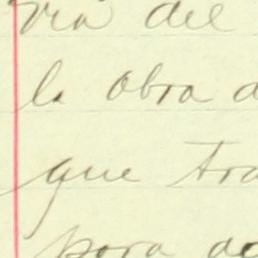 via del
la obra d
que tra
para de